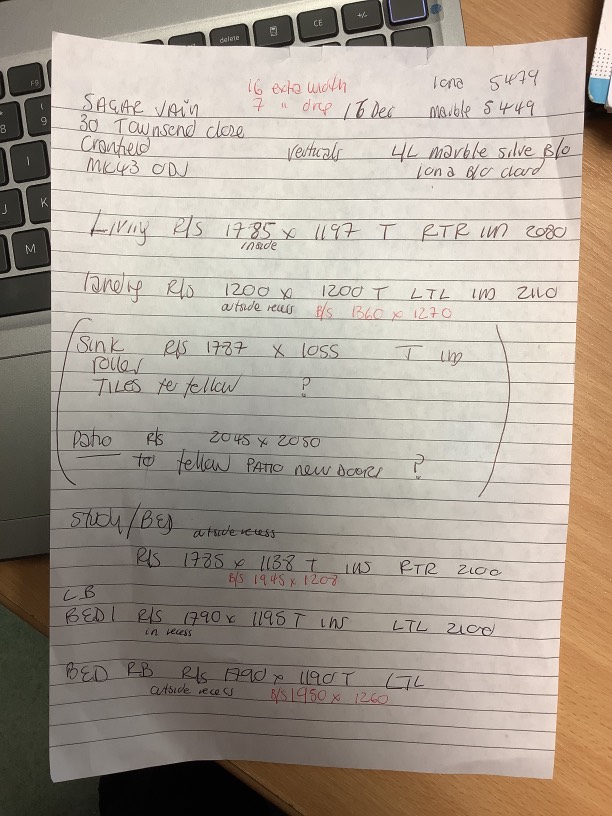 16 extra width
7 " drop
16 Dec
Iona 5479
marble 5449
SAGAR VAIN
30 Townsend close
Cranfield
MK43 0DJ
verticals
4L marble silve B/o
Iona B/o clard
Living R/S 1785 x 1197 T RTR IM 2080
inside
landing R/S 1200 x 1200 T LTL IM 2110
outside recess B/S 1360 x 1270
Sink R/S 1787 x 1055 T IM
roller
TILES to fellow ?
Patio R/S 2045 x 2050
to fellow PATIO new DOORS ?
Study/BED outside recess
R/S 1785 x 1138 T INS RTR 2100
B/S 1945 x 1208
LB
BED 1 R/S 1790 x 1195 T INS LTL 2100
in recess
BED RB R/S 1790 x 1190 T LTL
outside recess B/S 1950 x 1260
delete
CE
+/-
F9
8
9
I
J
K
M